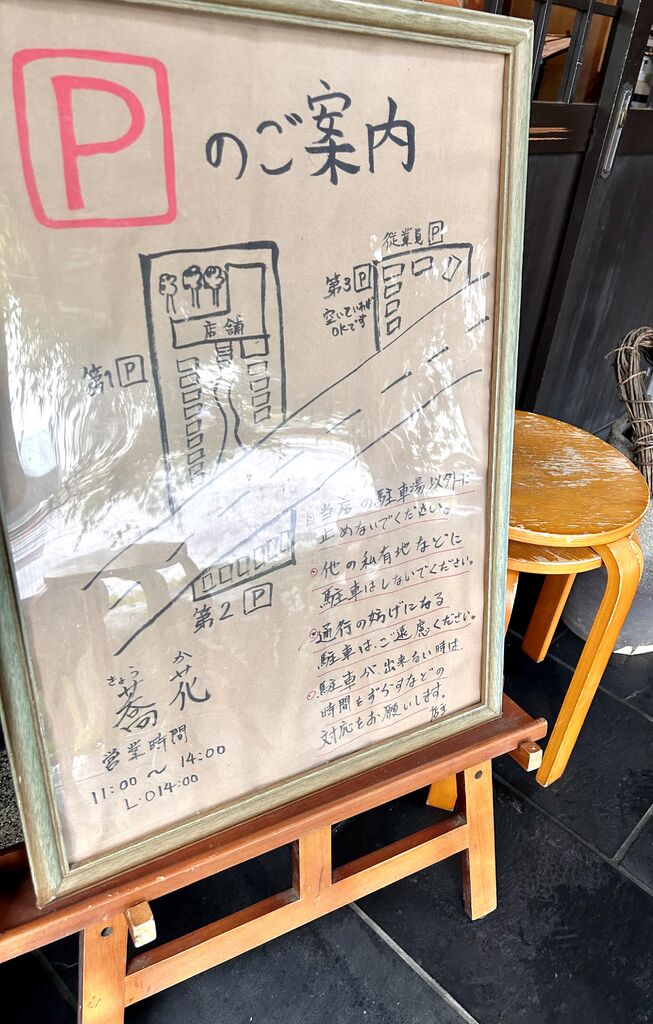 P のご案内
従業員 P
第3 P
空いていれば
OKです
店舗
第1 P
第2 P
当店の駐車場以外に
止めないでください。
他の私有地などに
駐車はしないでください。
通行の妨げになる
駐車は、ご遠慮ください。
駐車が出来ない時は
時間をずらすなどの
対応をお願いします。
店主
きょう かせ
蕎 花
営業時間
11:00 〜 14:00
L.O14:00